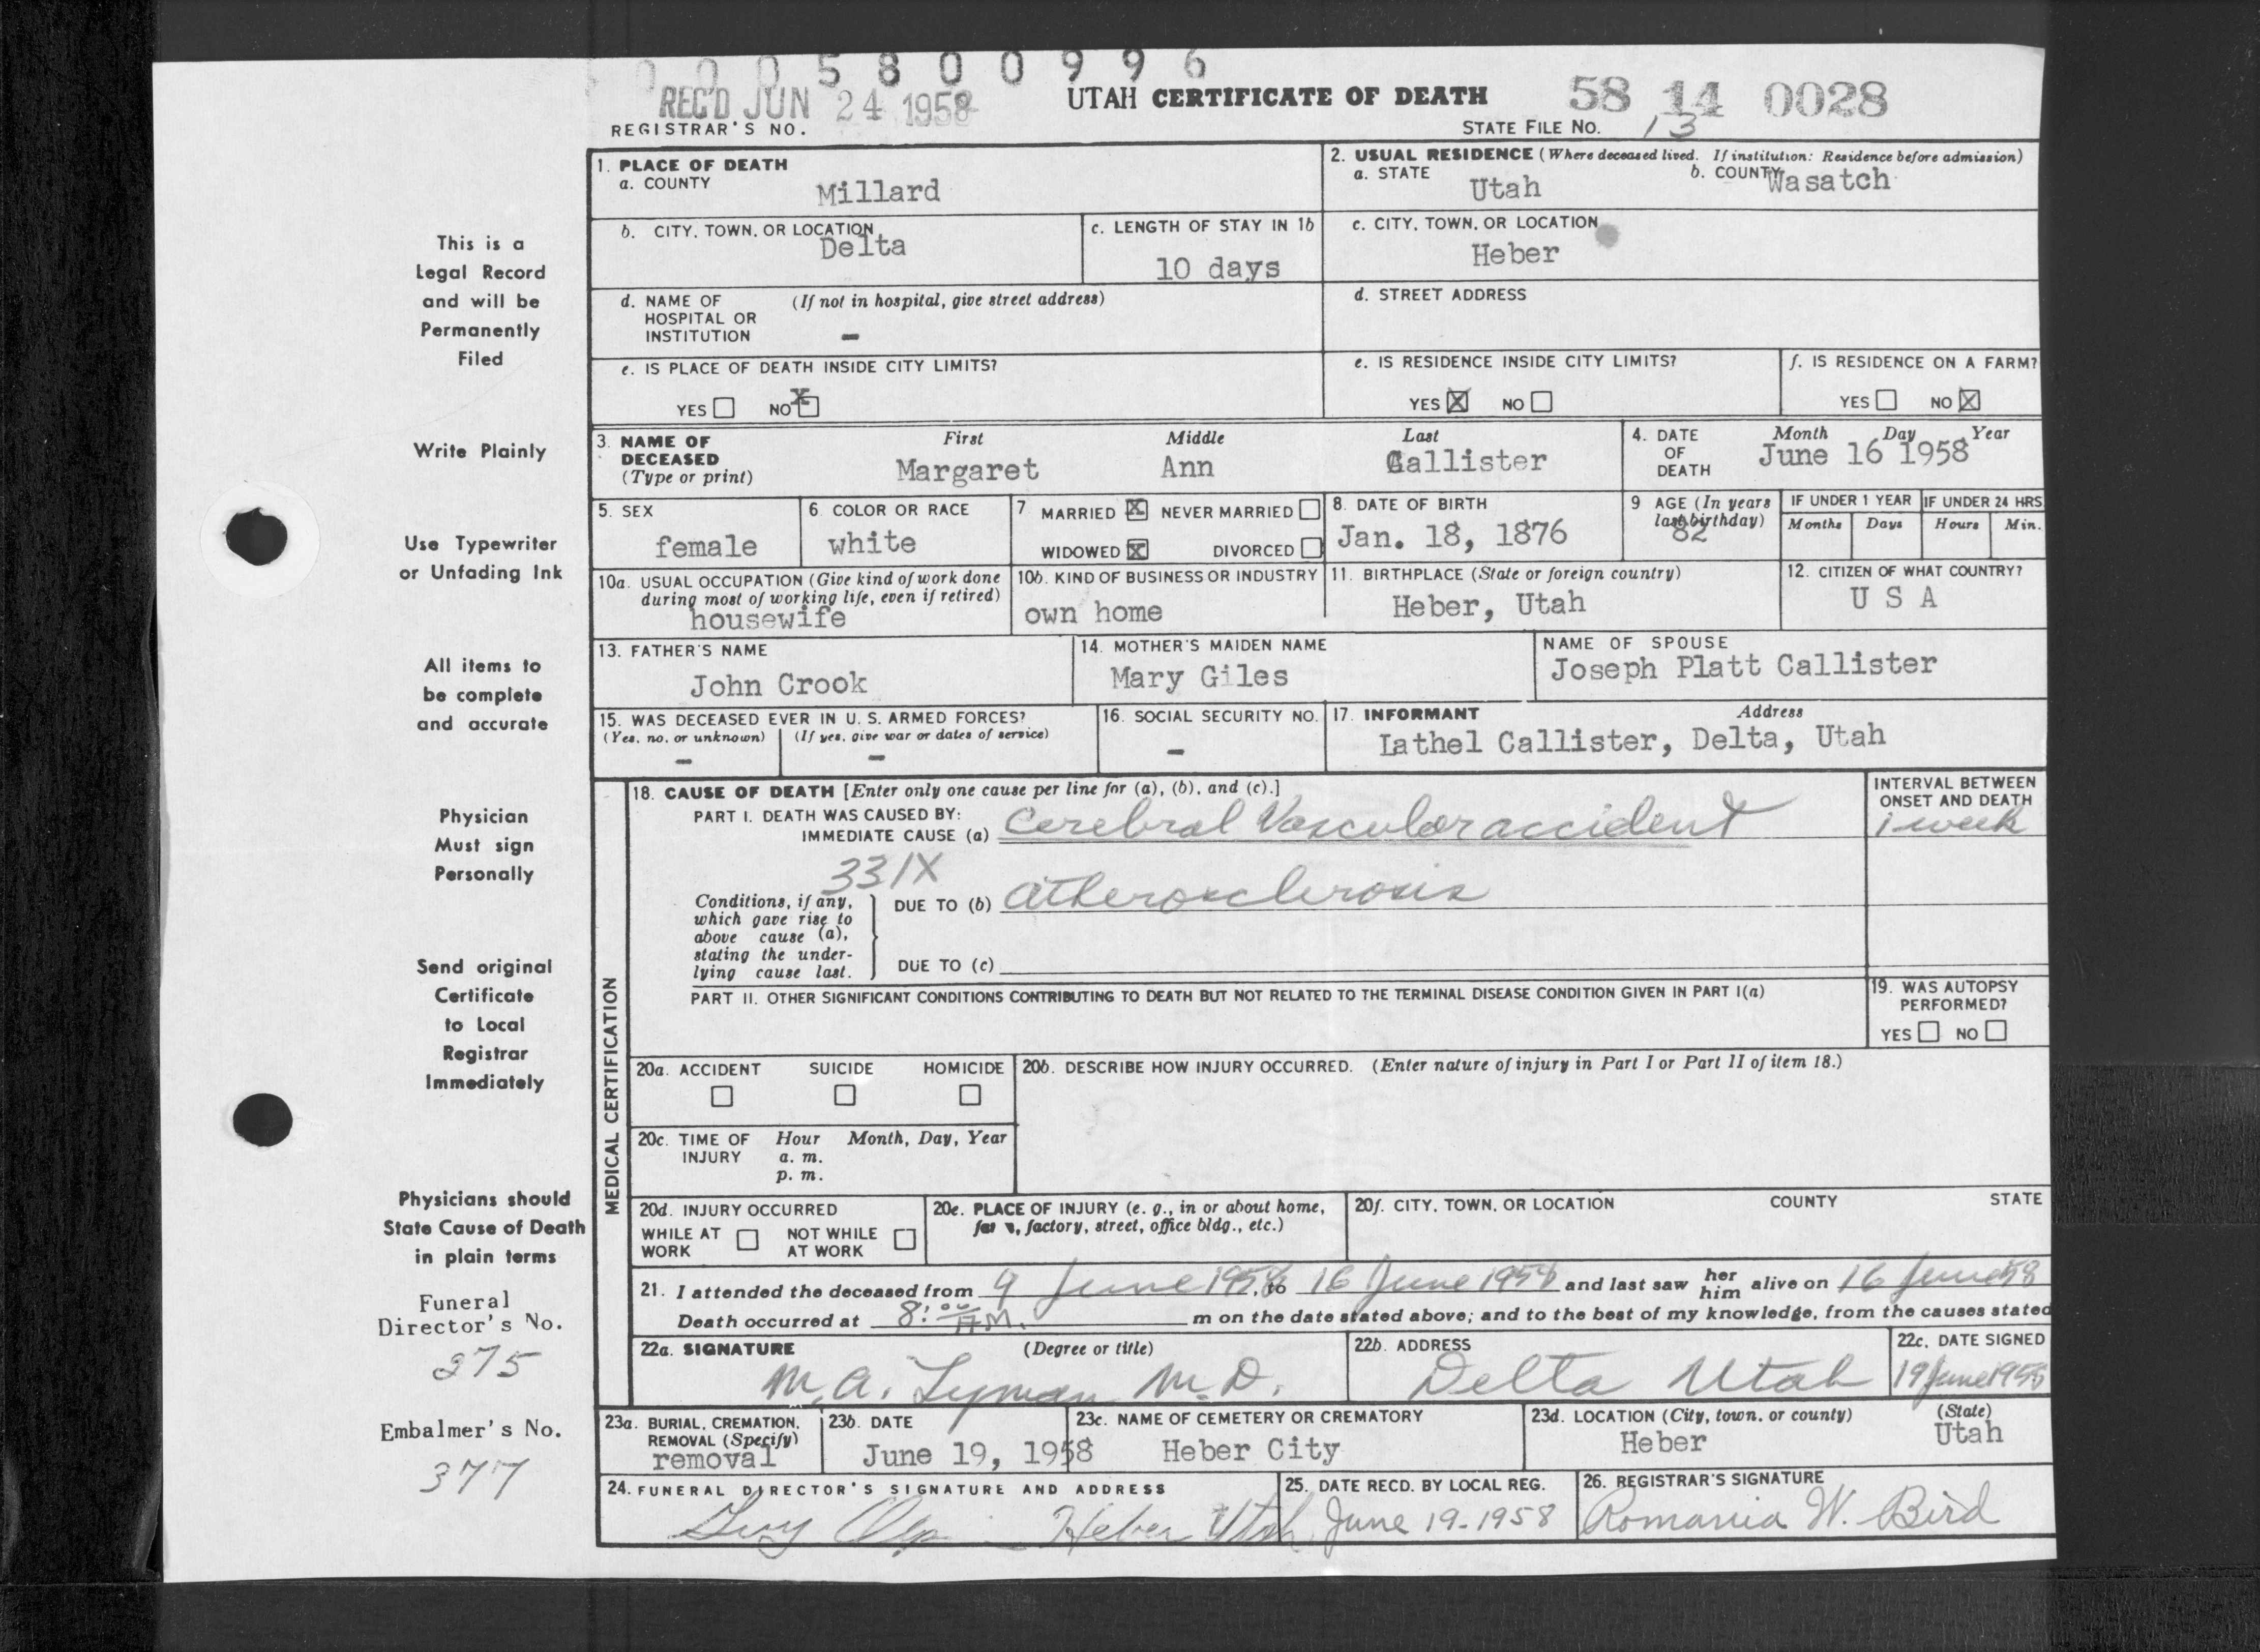 0 0 0 5 8 0 0 9 9 6
REC'D JUN 24 1958
UTAH CERTIFICATE OF DEATH
58 14 0028
REGISTRAR'S NO.
STATE FILE NO. 13
1. PLACE OF DEATH
a. COUNTY
Millard
2. USUAL RESIDENCE (Where deceased lived. If institution: Residence before admission)
a. STATE
Utah
b. COUNTY
Wasatch
b. CITY, TOWN, OR LOCATION
Delta
c. LENGTH OF STAY IN 1b
10 days
c. CITY, TOWN, OR LOCATION
Heber
d. NAME OF HOSPITAL OR INSTITUTION
(If not in hospital, give street address)
-
d. STREET ADDRESS
e. IS PLACE OF DEATH INSIDE CITY LIMITS?
YES NO X
e. IS RESIDENCE INSIDE CITY LIMITS?
YES X NO
f. IS RESIDENCE ON A FARM?
YES NO X
3. NAME OF DECEASED
(Type or print)
First Middle Last
Margaret Ann Callister
4. DATE OF DEATH
Month Day Year
June 16 1958
5. SEX
female
6. COLOR OR RACE
white
7 MARRIED X NEVER MARRIED
WIDOWED X DIVORCED
8. DATE OF BIRTH
Jan. 18, 1876
9 AGE (In years last birthday)
82
IF UNDER 1 YEAR
Months Days
IF UNDER 24 HRS
Hours Min.
10a. USUAL OCCUPATION (Give kind of work done during most of working life, even if retired)
housewife
10b. KIND OF BUSINESS OR INDUSTRY
own home
11. BIRTHPLACE (State or foreign country)
Heber, Utah
12. CITIZEN OF WHAT COUNTRY?
U S A
13. FATHER'S NAME
John Crook
14. MOTHER'S MAIDEN NAME
Mary Giles
NAME OF SPOUSE
Joseph Platt Callister
15. WAS DECEASED EVER IN U. S. ARMED FORCES?
(Yes, no, or unknown) (If yes, give war or dates of service)
- -
16. SOCIAL SECURITY NO.
-
17. INFORMANT Address
Lathel Callister, Delta, Utah
MEDICAL CERTIFICATION
18. CAUSE OF DEATH [Enter only one cause per line for (a), (b), and (c).]
PART I. DEATH WAS CAUSED BY:
IMMEDIATE CAUSE (a) Cerebral Vascular accident
INTERVAL BETWEEN ONSET AND DEATH
1 week
331X
Conditions, if any, which gave rise to above cause (a), stating the underlying cause last.
DUE TO (b) Atherosclerosis
DUE TO (c)
PART II. OTHER SIGNIFICANT CONDITIONS CONTRIBUTING TO DEATH BUT NOT RELATED TO THE TERMINAL DISEASE CONDITION GIVEN IN PART I(a)
19. WAS AUTOPSY PERFORMED?
YES NO
20a. ACCIDENT SUICIDE HOMICIDE
20b. DESCRIBE HOW INJURY OCCURRED. (Enter nature of injury in Part I or Part II of item 18.)
20c. TIME OF INJURY Hour Month, Day, Year
a. m.
p. m.
20d. INJURY OCCURRED
WHILE AT WORK NOT WHILE AT WORK
20e. PLACE OF INJURY (e. g., in or about home, farm, factory, street, office bldg., etc.)
20f. CITY, TOWN, OR LOCATION COUNTY STATE
21. I attended the deceased from 9 June 1958, to 16 June 1958 and last saw her him alive on 16 June 58
Death occurred at 8:00 A M. m on the date stated above; and to the best of my knowledge, from the causes stated
22a. SIGNATURE (Degree or title)
M. A. Lyman M. D.
22b. ADDRESS
Delta Utah
22c. DATE SIGNED
19 June 1958
23a. BURIAL, CREMATION, REMOVAL (Specify)
removal
23b. DATE
June 19, 1958
23c. NAME OF CEMETERY OR CREMATORY
Heber City
23d. LOCATION (City, town, or county) (State)
Heber Utah
24. FUNERAL DIRECTOR'S SIGNATURE AND ADDRESS
Heber Utah
25. DATE RECD. BY LOCAL REG.
June 19-1958
26. REGISTRAR'S SIGNATURE
Romania W. Bird
This is a
Legal Record
and will be
Permanently
Filed
Write Plainly
Use Typewriter
or Unfading Ink
All items to
be complete
and accurate
Physician
Must sign
Personally
Send original
Certificate
to Local
Registrar
Immediately
Physicians should
State Cause of Death
in plain terms
Funeral
Director's No.
275
Embalmer's No.
377